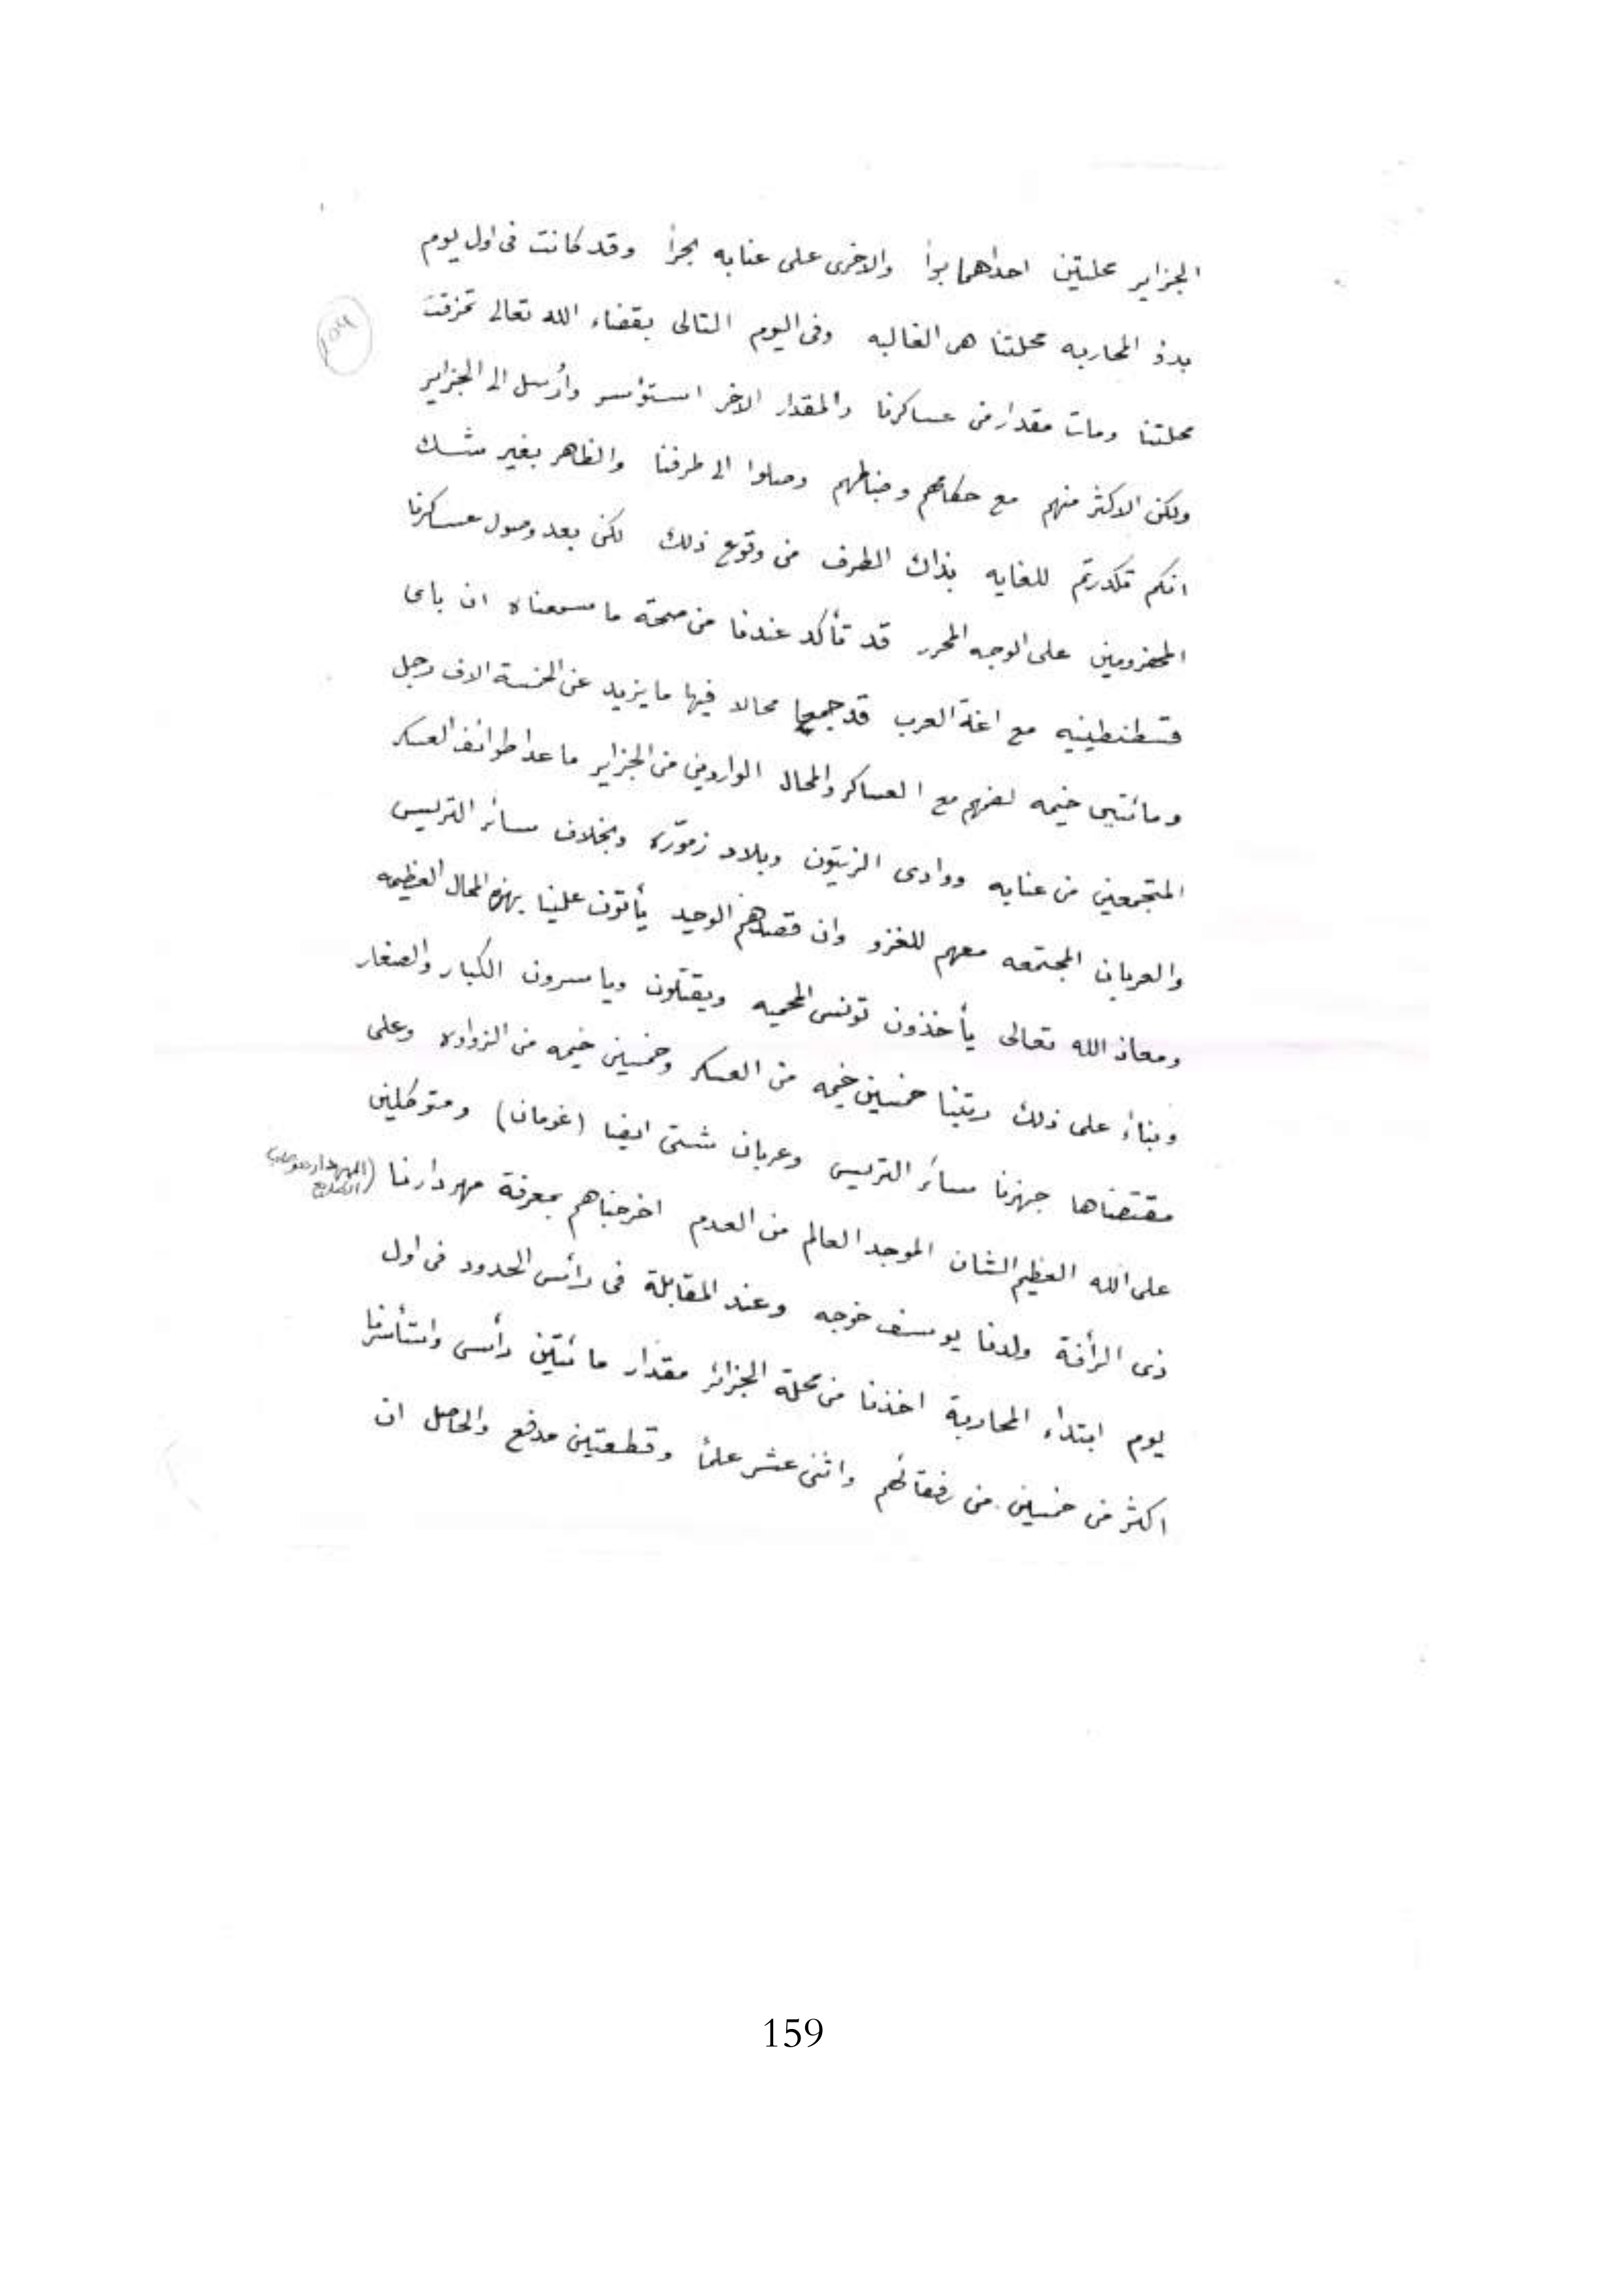 الجزاير محلتين احداهما براً والاخرى على عنابه بحراً وقد كانت فى اول يوم
بدؤ المحاربه محلتنا هى الغالبه وفى اليوم التالى بقضاء الله تعالى تمزقت
محلتنا ومات مقدار من عساكرنا والمقدار الاخر استؤسر وأرسل الى الجزاير
ولكن الاكثر منهم مع حكامهم وضباطهم وصلوا الى طرفنا والظاهر بغير شك
انكم تكدرتم للغايه بذاك الطرف من وقوع ذلك لكن بعد وصول عسكرنا
المحفزومين على الوجه المحرر قد تأكد عندنا من صحته ما سمعناه ان باى
قسطنطينيه مع اغة العرب قد جمعا محالا فيها ما يزيد عن الخمسة الاف رجل
ومائتين خيمه لضم مع العساكر والمحال الواردين من الجزاير ما عدا طوائف العسكر
المتجمعين من عنابه ووادى الزيتون وبلاد زمّوره وبخلاف سائر التريس
والعربان المجتمعه معهم للغزو وان قصدهم الوحيد يأتون علينا بهذه المحال العظيمه
ومعاذ الله تعالى يأخذون تونس المحميه ويقتلون وياسرون الكبار والصغار
وبناء على ذلك رتبنا خمسين خيمه من العسكر وخمسين خيمه من الزواوه وعلى
مقتضاها جهزنا سائر التريس وعربان شتى ايضا (غومانا) ومتوكلين
على الله العظيم الشان الموجد العالم من العدم اخرجناهم بمعرفة مهردارنا (المهردار هو صاحب الطابع
ذى الرأفة ولدنا يوسف خوجه وعند المقابلة فى رائس الحدود فى اول
يوم ابتداء المحاربة اخذنا من محلة الجزائر مقدار مائتين رأس واستأسرنا
اكثر من خمسين من رفقائهم واثنى عشر علماً وقطعتين مدفع والحاصل ان
159